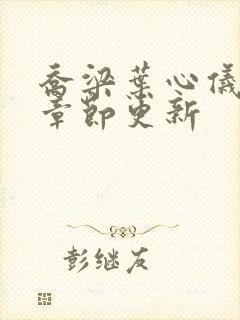 乔梁叶心仪
章节更新
彭继友